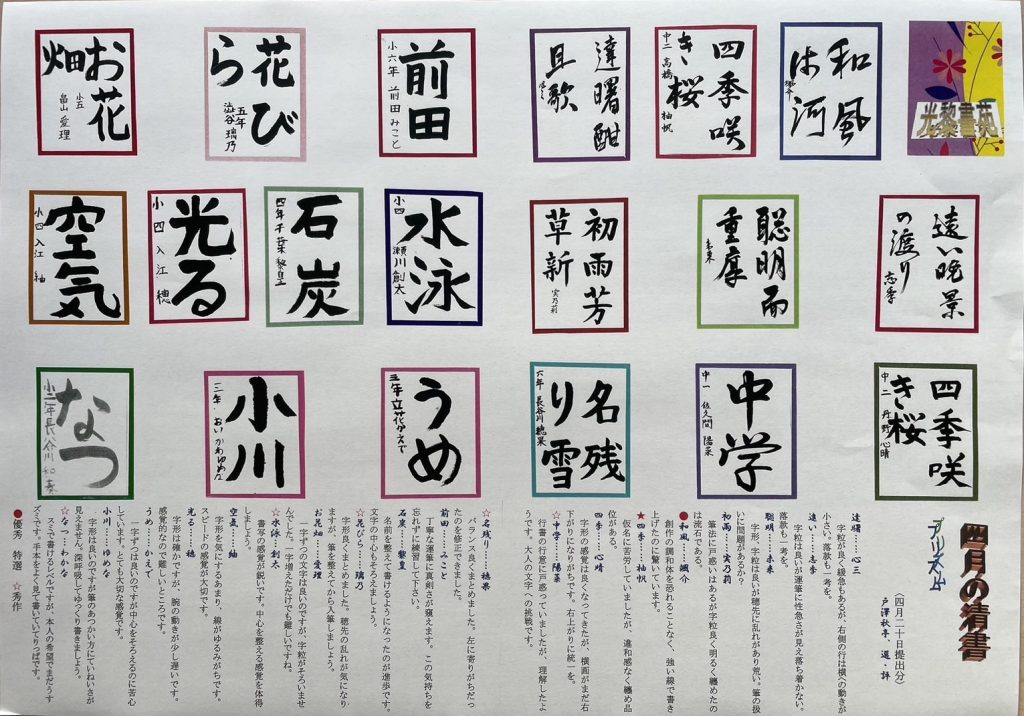 光黎書苑
和風
は河
颯介
四季咲
き桜
中二 高橋 柚帆
達曙酣
且歌
前田
小六年 前田みこと
花び
ら
五年
澁谷 璃乃
お花
畑
小五
畠山 愛理
遠い晩景
の渡り
志季
聡明而
重厚
未来
初雨芳
草新
実乃莉
水泳
小四 瀬川創太
石炭
四年 千葉黎皇
光る
小四 入江 穂
空気
小四 入江 紬
四季咲
き桜
中二 丹野 心晴
中学
中一 佐久間 陽菜
名残
り雪
六年 長谷川穂果
うめ
三年 立花かえで
小川
二年 おいかわゆめな
なつ
小二年 長谷川和奏
四月の清書
プリズム
(四月二十日提出分)
戸澤秋亭、選・評
達曙……心三
字粒が良く緩急もあるが、右側の行は横への動きが
小さい。落款も一考を。
遠い……志季
字粒は良いが運筆に性急さが見え落ち着かない。
落款も一考を。
聡明……未来
字形、字粒は良いが穂先に乱れがあり荒い。筆の扱
いに問題があるか?
初雨……実乃莉
筆法に戸惑いはあるが字粒良く明るく纏めたの
は流石である。
●和風……颯介
創作の調和体を恐れることなく、強い線で書き
上げたのに驚いています。
★四季……柚帆
仮名に苦労していましたが、違和感なく纏め品
位がある。
四季……心晴
字形の感覚が良くなってきたが、横画がまだ右
下がりになりがちです。右上がりに統一を。
☆中学……陽菜
行書の行意に戸惑っていましたが、理解したよ
うです。大人の文字への挑戦です。
☆名残り……穂果
バランス良くまとめました。左に寄りがちだっ
たのを修正できました。
前田……みこと
丁寧な運筆に真剣さが窺えます。この気持ちを
忘れずに練習して下さい。
石炭……黎皇
名前を整えて書けるようになったのが進歩です。
文字の中心もそろえましょう。
☆花びら……璃乃
字形良くまとめました。穂先の乱れが気になり
ますが、筆を整えてから入筆しましょう。
お花畑……愛理
一字ずつの文字は良いのですが、字粒がそろいませ
んでした。一字増えただけでも難しいですね。
☆水泳……創太
書写の感覚が鋭いです。中心を整える感覚を体得
しましょう。
空気……紬
字形を気にするあまり、線がゆるみがちです。
スピードの感覚が大切です。
光る……穂
字形は確かですが、腕の動きが少し遅いです。
感覚的なので難しいところです。
うめ……かえで
一字ずつは良いのですが中心をそろえるのに苦心
しています。とても大切な感覚です。
小川……ゆめな
字形は良いのですが筆のあつかい方にていねいさが
見えません。深呼吸してゆっくり書きましょう。
☆なつ……わかな
スミで書けるレベルですが、本人の希望でまだうす
ズミです。手本をよく見て書いていてりっぱです。
●優秀 特選 ☆秀作